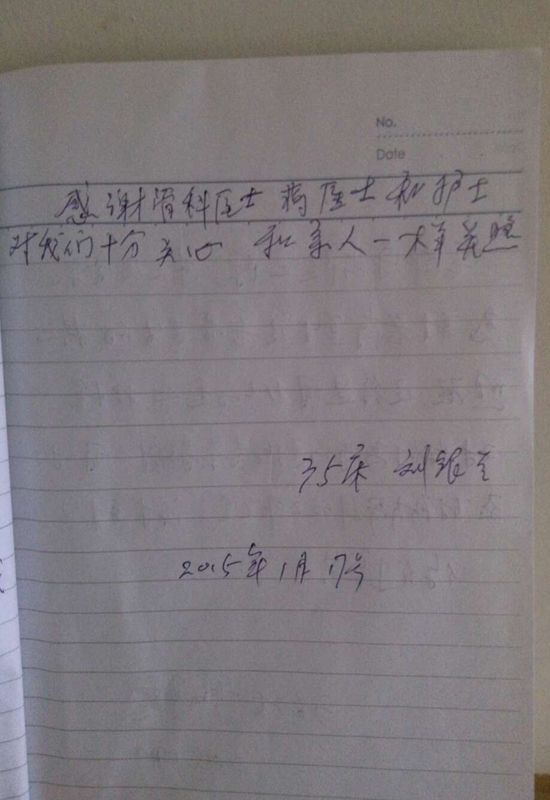 No.
Date
感谢骨科医士 医士和护士
对我们十分关心 和亲人一样关照
35床 刘银兰
2015年1月17号